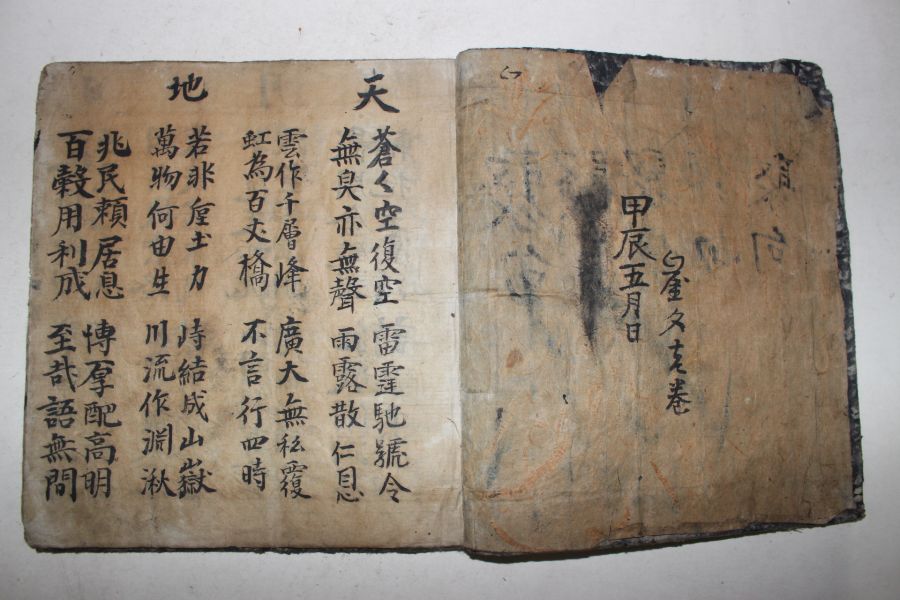 甲辰五月日
天
蒼々空復空 雷霆馳號令
無臭亦無聲 雨露散仁恩
雲作千層峰 廣大無私覆
虹為百丈橋 不言行四時
地
若非厚土力 峙結成山嶽
萬物何由生 川流作淵湫
兆民賴居息 博厚配高明
百穀用利成 至哉語無間